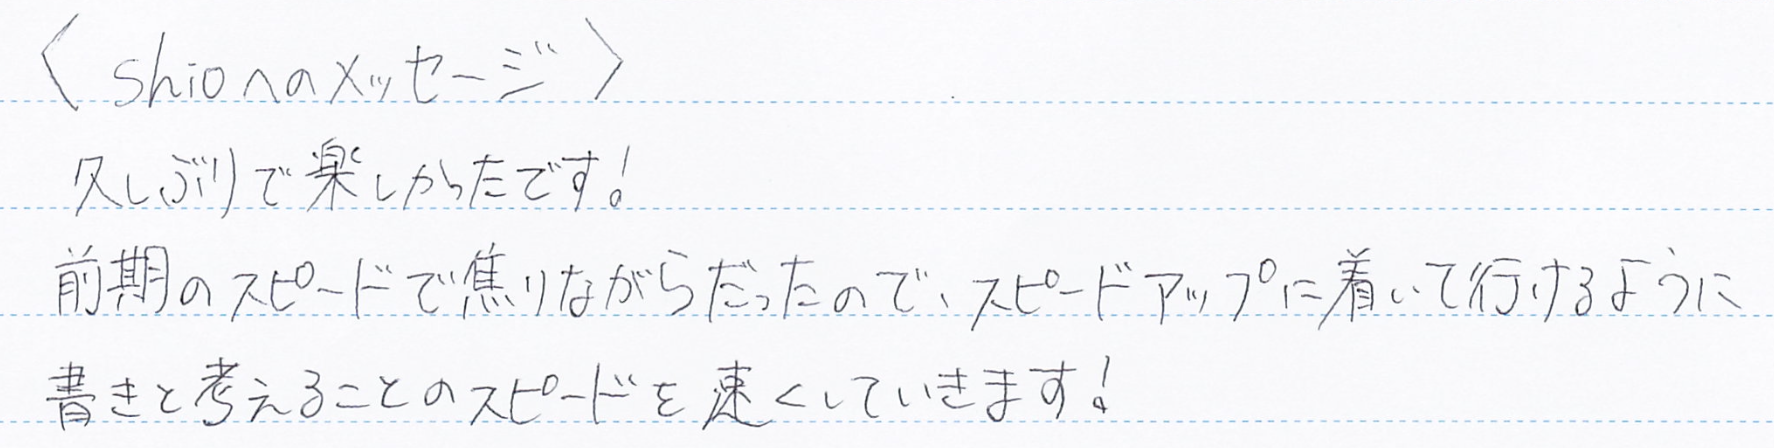 〈shioへのメッセージ〉
久しぶりで楽しかったです!
前期のスピードで焦りながらだったので、スピードアップに着いて行けるように
書きと考えることのスピードを速くしていきます!